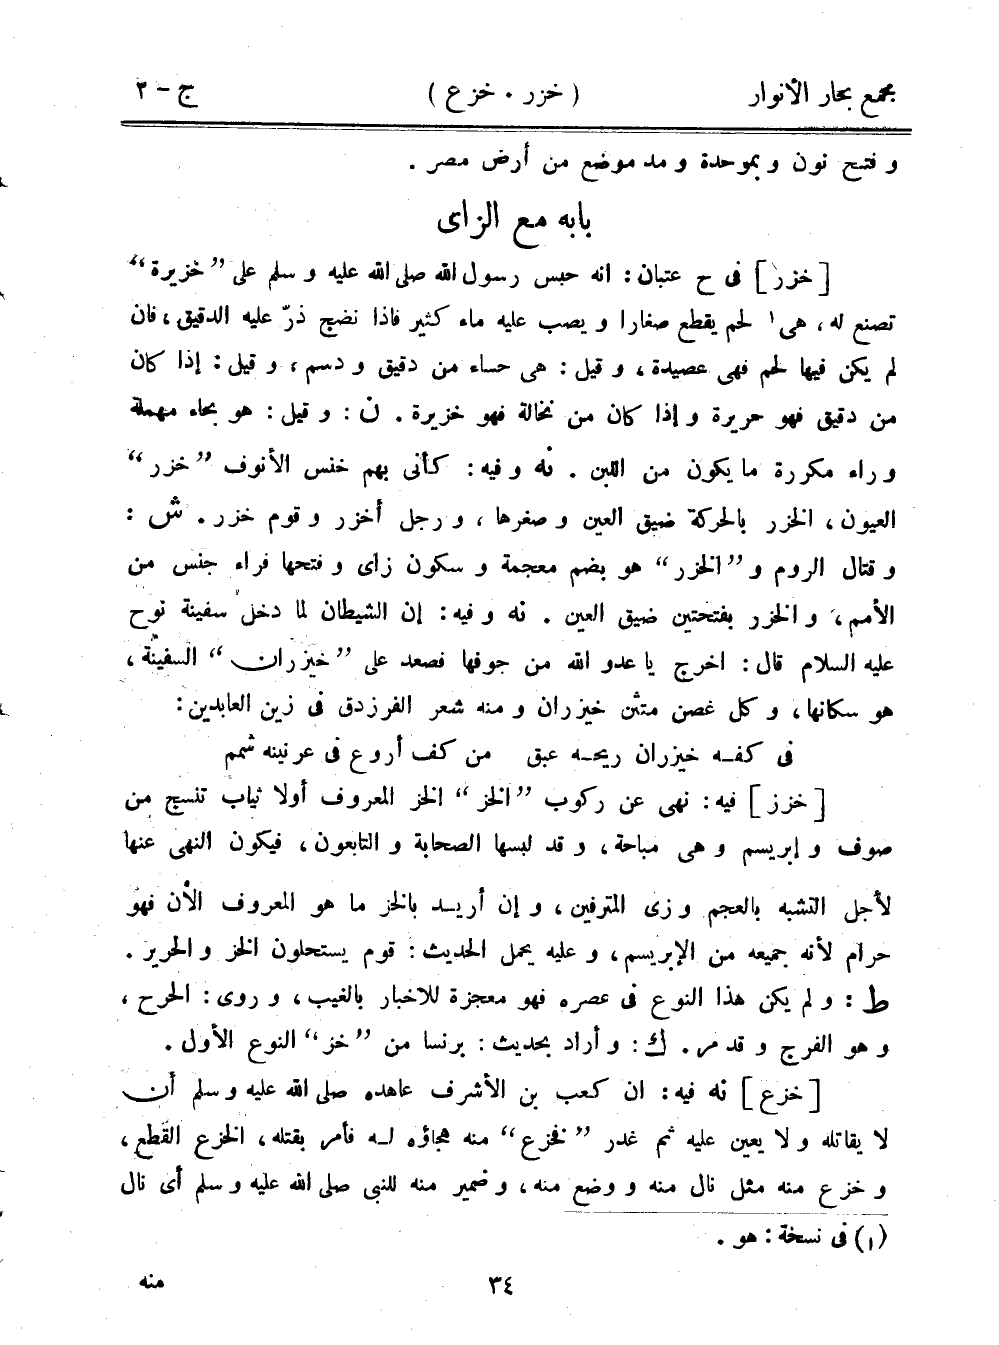 مجمع بحار الأنوار ( خزر . خزع ) ج - ٢
و فتح نون و بموحدة و مد موضع من أرض مصر .
بابه مع الزاى
[ خزر ] فى ح عتبان : انه حبس رسول الله صلى الله عليه و سلم على ’’ خزيرة ‘‘
تصنع له ، هى١ لحم يقطع صغارا و يصب عليه ماء كثير فاذا نضج ذرّ عليه الدقيق ، فان
لم يكن فيها لحم فهى عصيدة ، و قيل : هى حساء من دقيق و دسم ، و قيل : إذا كان
من دقيق فهو حريرة و إذا كان من نخالة فهو خزيرة . ن : و قيل : هو بحاء مهملة
و راء مكررة ما يكون من اللبن . نه و فيه : كأنى بهم خنس الأنوف ’’ خزر ‘‘
العيون ، الخزر بالحركة ضيق العين و صغرها ، و رجل أخزر و قوم خزر . ش :
و قتال الروم و ’’ الخزر ‘‘ هو بضم معجمة و سكون زاى و فتحها فراء جنس من
الأمم ، و الخزر بفتحتين ضيق العين . نه و فيه : إن الشيطان لما دخل سفينة نوح
عليه السلام قال : اخرج يا عدو الله من جوفها فصعد على ’’ خيزران ‘‘ السفينة ،
هو سكانها ، و كل غصن متثن خيزران و منه شعر الفرزدق فى زين العابدين :
فى كفه خيزران ريحه عبق من كف أروع فى عرنينه شمم
[ خزز ] فيه : نهى عن ركوب ’’ الخز ‘‘ الخز المعروف أولا ثياب تنسج من
صوف و إبريسم و هى مباحة ، و قد لبسها الصحابة و التابعون ، فيكون النهى عنها
لأجل التشبه بالعجم و زى المترفين ، و إن أريد بالخز ما هو المعروف الأن فهو
حرام لأنه جميعه من الإبريسم ، و عليه يحمل الحديث : قوم يستحلون الخز و الحرير .
ط : و لم يكن هذا النوع فى عصره فهو معجزة للاخبار بالغيب ، و روى : الحرح ،
و هو الفرج و قد مر . ك : و أراد بحديث : برنسا من ’’ خز ‘‘ النوع الأول .
[ خزع ] نه فيه : ان كعب بن الأشرف عاهده صلى الله عليه و سلم أن
لا يقاتله و لا يعين عليه ثم غدر ’’ فخزع ‘‘ منه هجاؤه له فأمر بقتله ، الخزع القطع ،
و خزع منه مثل نال منه و وضع منه ، و ضمير منه للنبى صلى الله عليه و سلم أى نال
(١) فى نسخة : هو .
٣٤ منه